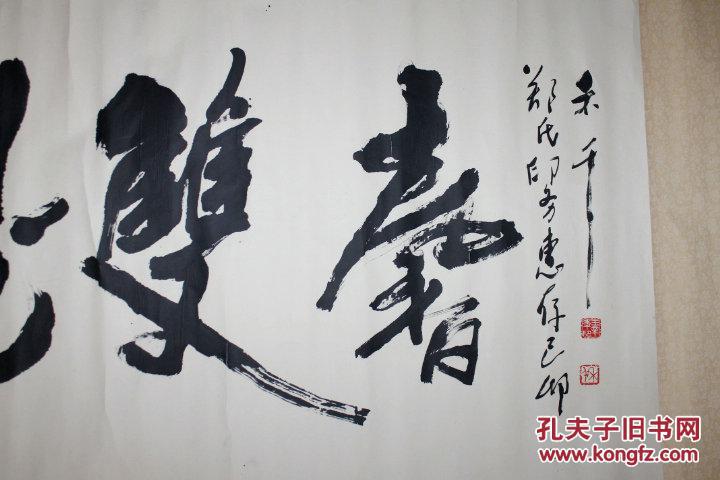 雙馨
郑氏印务惠存己卯
孔夫子旧书网
www.kongfz.com